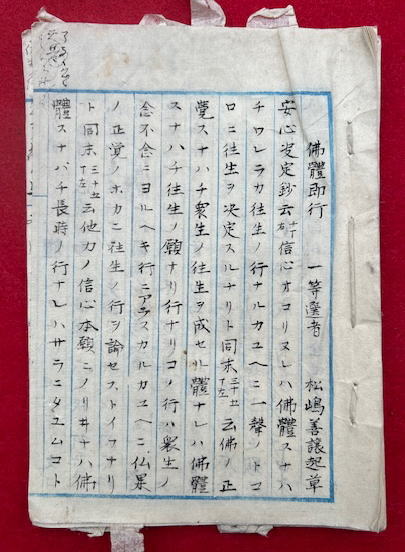 佛體即行　一等選者　松嶋善譲起草
安心決定鈔云十丁右信心オコリヌレハ佛體スナハ
チワレラカ往生ノ行ナルカユヘニ一聲ノトコ
ロニ往生ヲ決定スルナリト同末三十五丁左云佛ノ正
覺スナハチ衆生ノ往生ヲ成セル體ナレハ佛體
スナハチ往生ノ願ナリ行ナリコノ行ハ衆生ノ
念不念ニヨルヘキ行ニアラスカルカユヘニ仏果
ノ正覚ノホカニ往生ノ行ヲ論セストイフナリ
ト同末三十五丁左云他力ノ信心本願ニノリヰナハ佛
體スナハチ長時ノ行ナレハサラニタユムコト